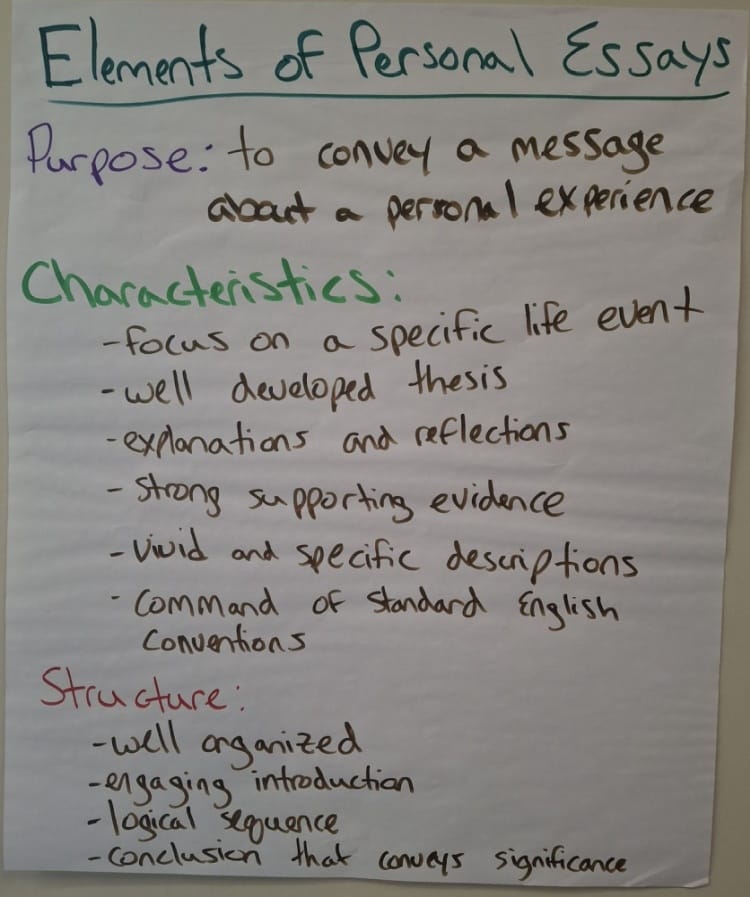 Elements of Personal Essays
Purpose: to convey a message
about a personal experience
Characteristics:
-focus on a specific life event
-well developed thesis
-explanations and reflections
-strong supporting evidence
-vivid and specific descriptions
-Command of standard English
Conventions
Structure:
-well organized
-engaging introduction
-logical sequence
-conclusion that conveys significance